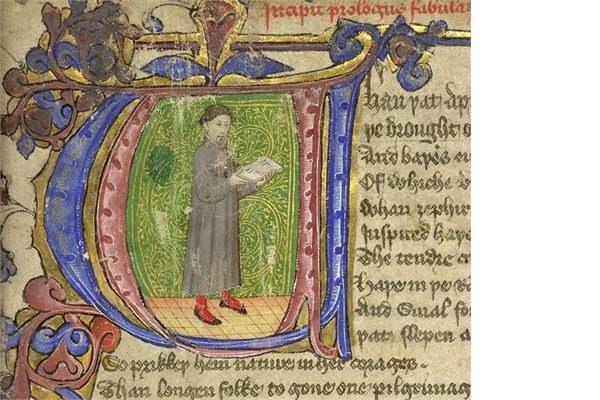 Incipit prologus fabular
Whan þat Apr
þe drought o
And baþes eu
Of whiche v
Whan zephir
Inspired haþe
The tendre cr
Haþe in þe ra
And smal fo
þat slepen a
So prikkeþ hem nature in her corages.
Than longen folke to gone one pilgrimag